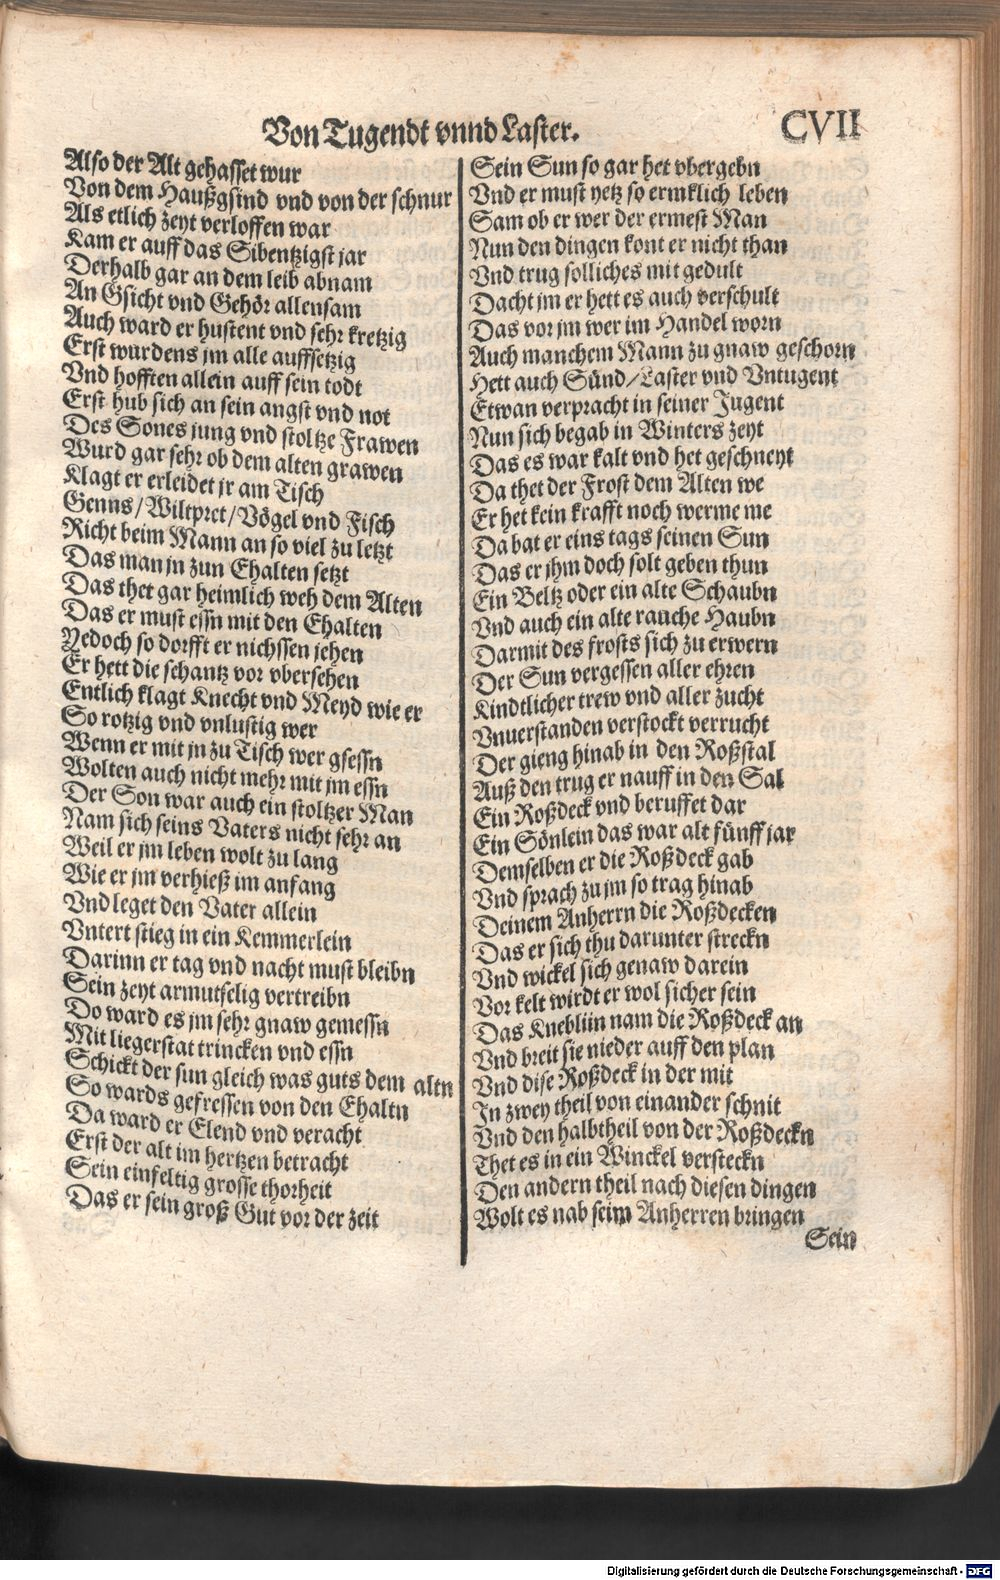 Von Tugendt vnnd Laster. CVII
Also der Alt gehasset wur
Von dem Haußgsind vnd von der schnur
Als etlich zeyt verloffen war
Kam er auff das Sibentzigst jar
Derhalb gar an dem leib abnam
An Gsicht vnd Gehör allensam
Auch ward er hustent vnd sehr kretzig
Erst wurdens jm alle auffsetzig
Vnd hofften allein auff sein todt
Erst hub sich an sein angst vnd not
Des Sones jung vnd stoltze Frawen
Wurd gar sehr ob dem alten grawen
Klagt er erleidet jr am Tisch
Genns/Wiltpret/Vögel vnd Fisch
Richt beim Mann an so viel zu letzt
Das man jn zun Ehalten setzt
Das thet gar heimlich weh dem Alten
Das er must essn mit den Ehalten
Yedoch so dorfft er nichssen jehen
Er hett die schantz vor vbersehen
Entlich klagt Knecht vnd Meyd wie er
So rotzig vnd vnlustig wer
Wenn er mit jn zu Tisch wer gsessn
Wolten auch nicht mehr mit jm essn
Der Son war auch ein stoltzer Man
Nam sich seins Vaters nicht sehr an
Weil er jm leben wolt zu lang
Wie er jm verhieß im anfang
Vnd leget den Vater allein
Vntert stieg in ein Kemmerlein
Darinn er tag vnd nacht must bleibn
Sein zeyt armutselig vertreibn
Do ward es jm sehr gnaw gemessn
Mit liegerstat trincken vnd essn
Schickt der sun gleich was guts dem altn
So wards gefressen von den Ehaltn
Da ward er Elend vnd veracht
Erst der alt im hertzen betracht
Sein einfeltig grosse thorheit
Das er sein groß Gut vor der zeit
Sein Sun so gar het vbergebn
Vnd er must yetz so ermklich leben
Sam ob er wer der ermest Man
Nun den dingen kont er nicht than
Vnd trug solliches mit gedult
Dacht jm er hett es auch verschult
Das vor jm wer im Handel worn
Auch manchem Mann zu gnaw geschorn
Hett auch Sünd/Laster vnd Vntugent
Etwan verpracht in seiner Jugent
Nun sich begab in Winters zeyt
Das es war kalt vnd het geschneyt
Da thet der Frost dem Alten we
Er het kein krafft noch werme me
Da bat er eins tags seinen Sun
Das er jhm doch solt geben thun
Ein Beltz oder ein alte Schaubn
Vnd auch ein alte rauche Haubn
Darmit des frosts sich zu erwern
Der Sun vergessen aller ehren
Kindtlicher trew vnd aller zucht
Vnuerstanden verstockt verrucht
Der gieng hinab in den Roßstal
Auß den trug er nauff in den Sal
Ein Roßdeck vnd beruffet dar
Ein Sönlein das war alt fünff jar
Demselben er die Roßdeck gab
Vnd sprach zu jm so trag hinab
Deinem Anherrn die Roßdecken
Das er sich thu darunter streckn
Vnd wickel sich genaw darein
Vor kelt wirdt er wol sicher sein
Das Kneblin nam die Roßdeck an
Vnd breit sie nieder auff den plan
Vnd dise Roßdeck in der mit
In zwey theil von einander schnit
Vnd den halbtheil von der Roßdeckn
Thet es in ein Winckel versteckn
Den andern theil nach diesen dingen
Wolt es nab seim Anherren bringen
Sein
Digitalisierung gefördert durch die Deutsche Forschungsgemeinschaft - DFG